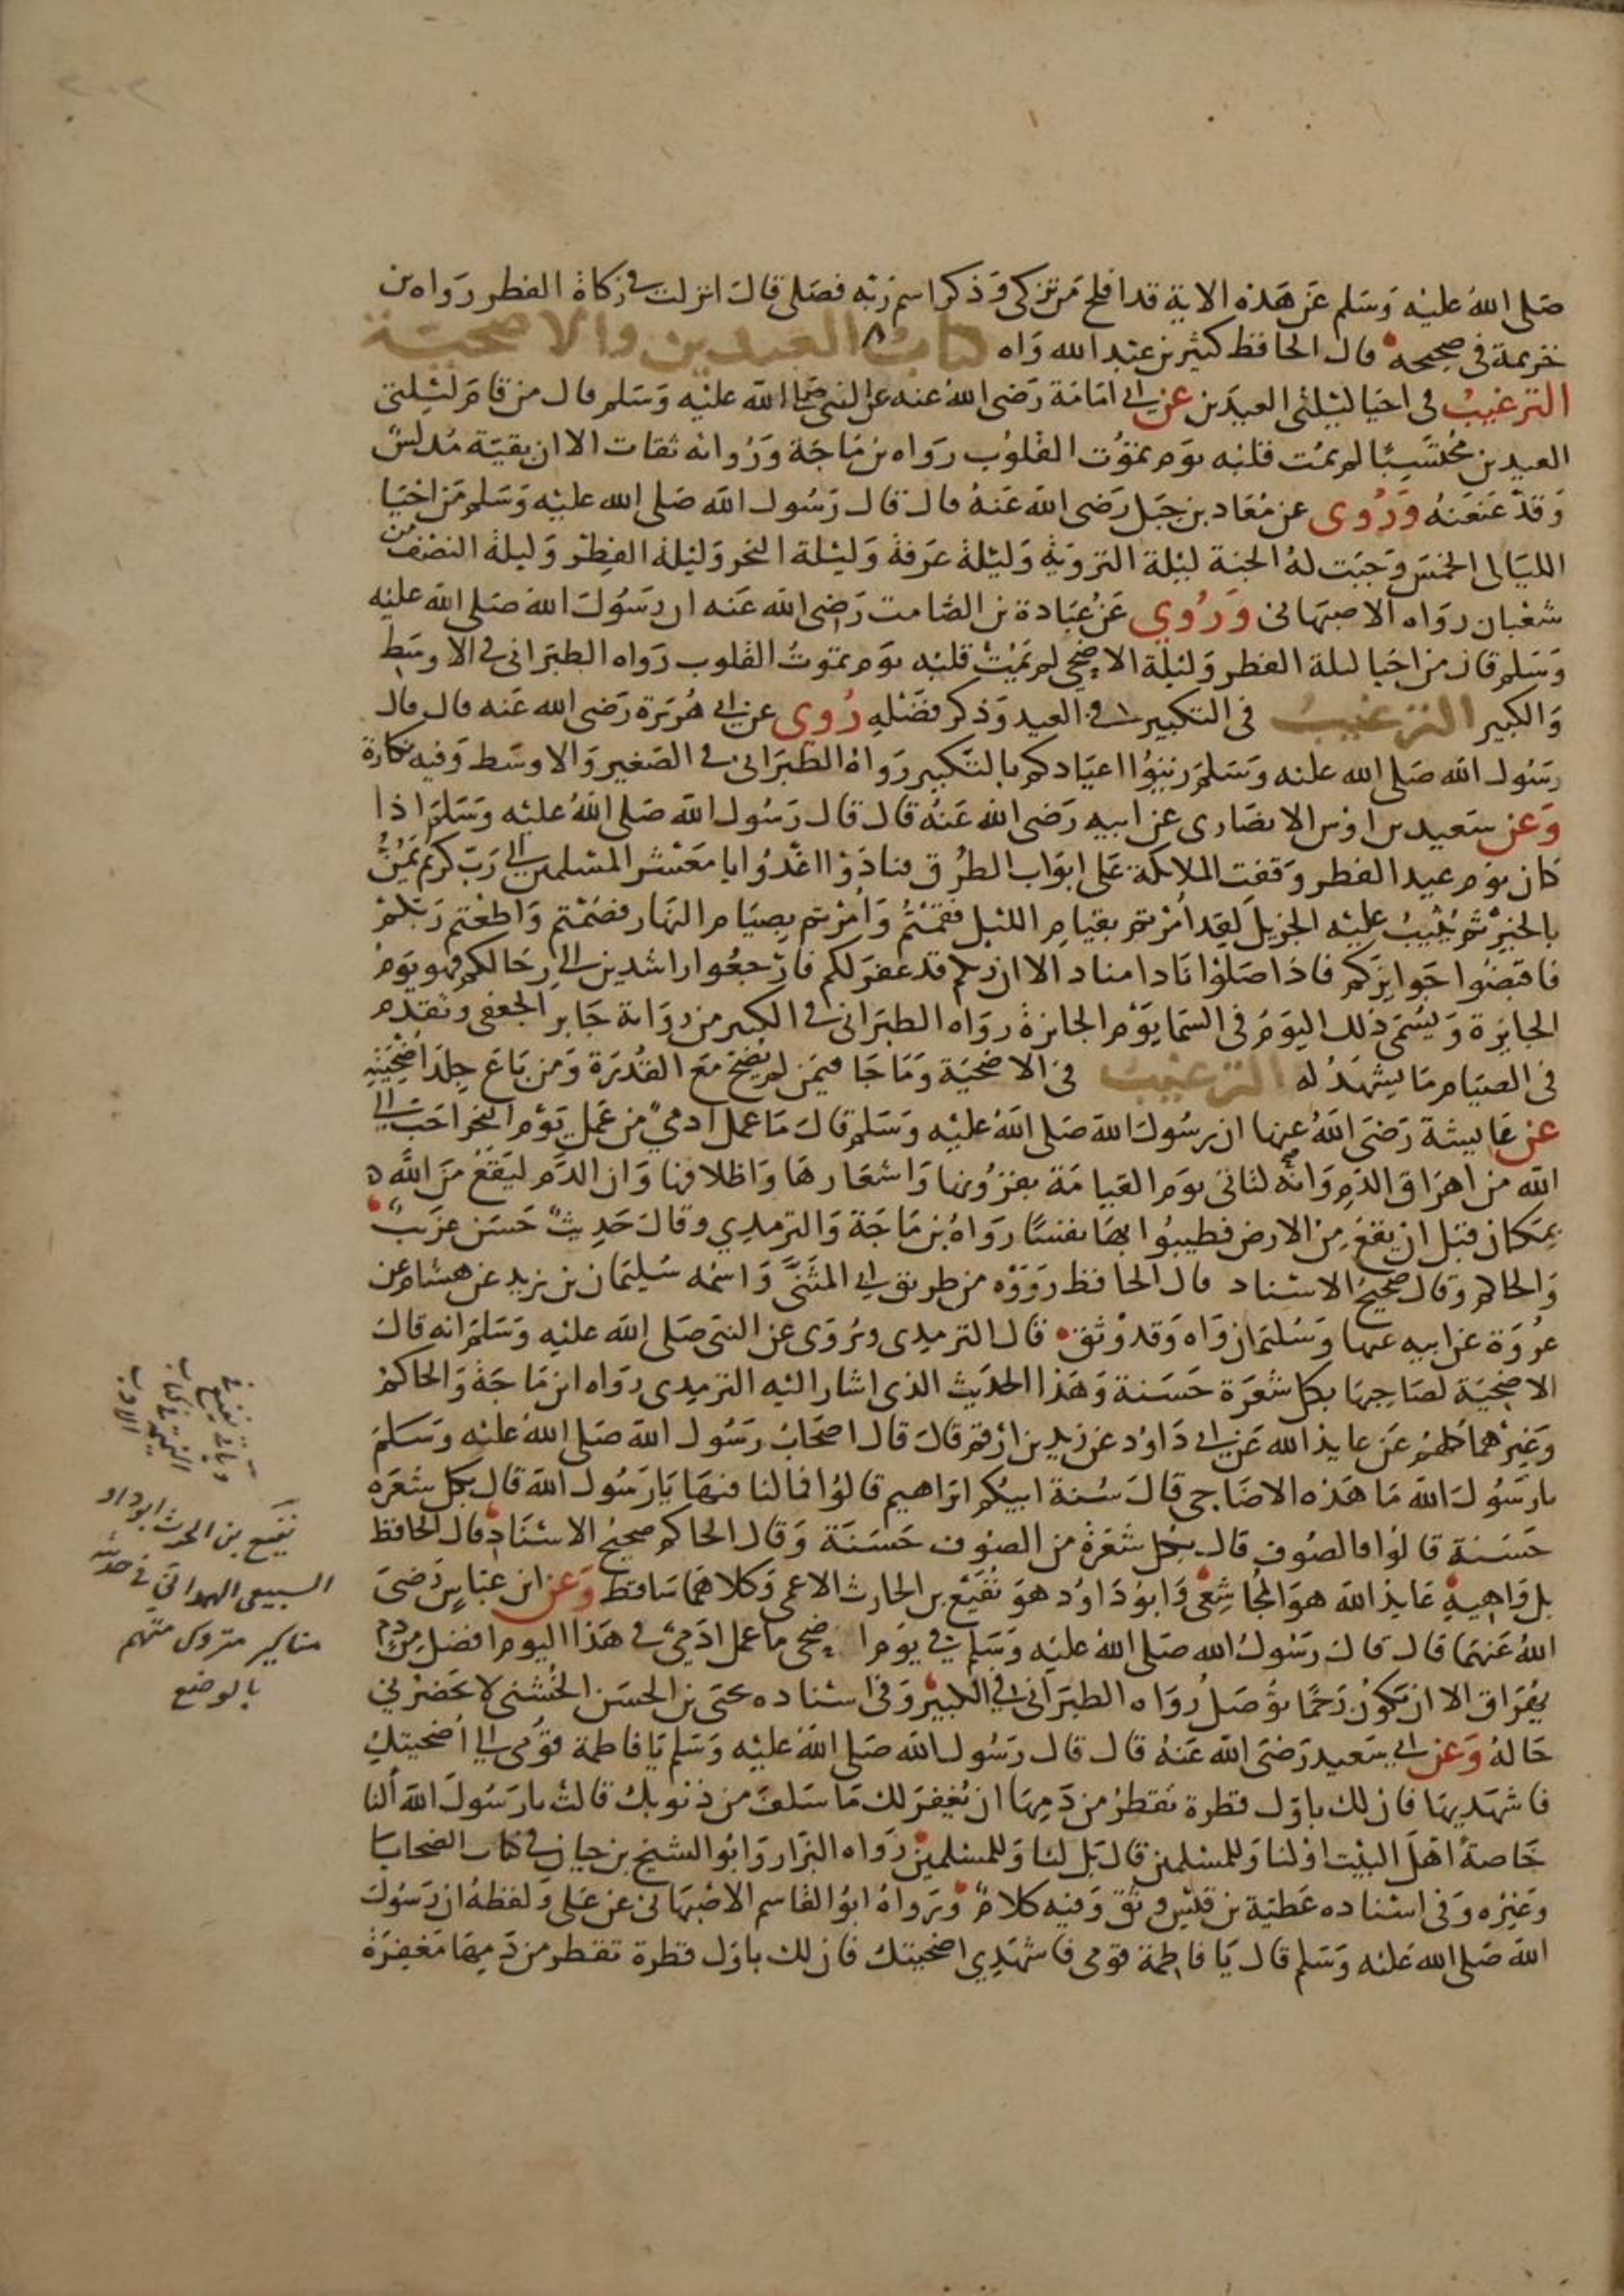 صلى الله عليه وسلم عن هذه الاية قد افلح من تزكى وذكر اسم ربه فصلى قال انزلت في زكاة الفطر رواه بن
خزيمة في صحيحه قال الحافظ كثير بن عبد الله واه كتاب العيدين والاضحية
الترغيب في احيا ليلتي العيدين عن ابي امامة رضي الله عنه عن النبي صلى الله عليه وسلم قال من قام ليلتي
العيدين محتسبا لم يمت قلبه يوم تموت القلوب رواه بن ماجة ورواته ثقات الا ان بقية مدلس
وقد عنعنه وروى عن معاد بن جبل رضي الله عنه قال قال رسول الله صلى الله عليه وسلم من احيا
الليالي الخمس وجبت له الجنة ليلة التروية وليلة عرفة وليلة النحر وليلة الفطر وليلة النصف من
شعبان رواه الاصبهاني وروي عن عبادة بن الصامت رضي الله عنه ان رسول الله صلى الله عليه
وسلم قال من احيا ليلة الفطر وليلة الاضحى لم يمت قلبه يوم تموت القلوب رواه الطبراني في الاوسط
والكبير الترغيب في التكبير في العيد وذكر فضله روي عن ابي هريرة رضي الله عنه قال قال
رسول الله صلى الله عليه وسلم زينوا اعيادكم بالتكبير رواه الطبراني في الصغير والاوسط وفيه نكارة
وعن سعيد بن اوس الانصاري عن ابيه رضي الله عنه قال قال رسول الله صلى الله عليه وسلم اذا
كان يوم عيد الفطر وقفت الملائكة على ابواب الطرق فنادوا اغدوا يا معشر المسلمين الى رب كريم يمن
بالخير ثم يثيب عليه الجزيل لقد امرتم بقيام الليل فقمتم وامرتم بصيام النهار فصمتم واطعتم ربكم
فاقبضوا جوايزكم فاذا صلوا نادا مناد الا ان ربكم قد غفر لكم فارجعوا راشدين الى رحالكم فهو يوم
الجايزة ويسمى ذلك اليوم في السما يوم الجايزة رواه الطبراني في الكبير من رواية جابر الجعفي وتقدم
في الصيام ما يشهد له الترغيب في الاضحية وما جا فيمن لم يضح مع القدرة ومن باع جلد اضحيته
عن عايشة رضي الله عنها ان رسول الله صلى الله عليه وسلم قال ما عمل ادمي من عمل يوم النحر احب الى
الله من اهراق الدم وانه لتاتي يوم القيامة بقرونها واشعارها واظلافها وان الدم ليقع من الله
بمكان قبل ان يقع من الارض فطيبوا بها نفسا رواه بن ماجة والترمدي وقال حديث حسن غريب
والحاكم وقال صحيح الاسناد قال الحافظ رووه من طريق ابي المثنى واسمه سليمان بن يزيد عن هشام عن
عروة عن ابيه عنها وسليمان واه وقد وثق قال الترمدي ويروى عن النبي صلى الله عليه وسلم انه قال
الاضحية لصاحبها بكل شعرة حسنة وهذا الحديث الذي اشار اليه الترميدي رواه ابن ماجة والحاكم
وغيرهما كلهم عن عايذ الله عن ابي داود عن زيد بن ارقم قال قال اصحاب رسول الله صلى الله عليه وسلم
يا رسول الله ما هذه الاضاحي قال سنة ابيكم ابراهيم قالوا فما لنا فيها يا رسول الله قال بكل شعره
حسنة قالوا فالصوف قال بكل شعرة من الصوف حسنة وقال الحاكم صحيح الاسناد قال الحافظ
بل واهية عايذ الله هو المجاشعي وابو داود هو نفيع بن الحارث الاعمى وكلاهما ساقط وعن ابن عباس رضي
الله عنهما قال قال رسول الله صلى الله عليه وسلم في يوم اضحى ما عمل ادمي في هذا اليوم افضل من دم
يهراق الا ان تكون رحما توصل رواه الطبراني في الكبير وفي اسناده يحيى بن الحسن الخشني لا يحضرني
حاله وعن ابي سعيد رضي الله عنه قال قال رسول الله صلى الله عليه وسلم يا فاطمة قومي الى اضحيتك
فاشهديها فان لك باول قطرة تقطر من دمها ان يغفر لك ما سلف من ذنوبك قالت يا رسول الله النا
خاصة اهل البيت او لنا وللمسلمين قال بل لنا وللمسلمين رواه البزار وابو الشيخ بن حيان في كتاب الضحايا
وغيره وفي اسناده عطية بن قيس وثق وفيه كلام ورواه ابو القاسم الاصبهاني عن علي ولفظه ان رسول
الله صلى الله عليه وسلم قال يا فاطمة قومي فاشهدي اضحيتك فان لك باول قطرة تقطر من دمها مغفرة
نفيع بن الحرث ابو داود
السبيعي الهمداني في حديثه
مناكير متروك متهم
بالوضع